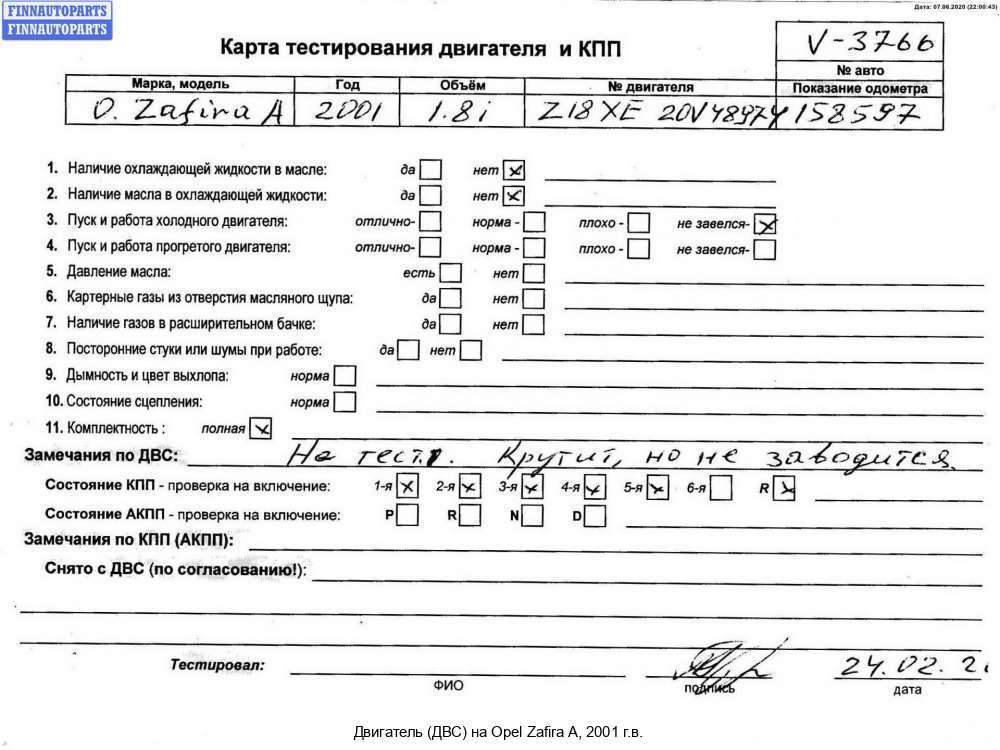 FINNAUTOPARTS
FINNAUTOPARTS
Дата: 07.06.2020 (22:00:43)
Карта тестирования двигателя и КПП
V-3766
№ авто
Марка, модель Год Объём № двигателя Показание одометра
O. Zafira A 2001 1.8i Z18XE 20V48974 158597
1. Наличие охлаждающей жидкости в масле: да нет
2. Наличие масла в охлаждающей жидкости: да нет
3. Пуск и работа холодного двигателя: отлично- норма - плохо - не завелся-
4. Пуск и работа прогретого двигателя: отлично- норма - плохо - не завелся-
5. Давление масла: есть нет
6. Картерные газы из отверстия масляного щупа: да нет
7. Наличие газов в расширительном бачке: да нет
8. Посторонние стуки или шумы при работе: да нет
9. Дымность и цвет выхлопа: норма
10. Состояние сцепления: норма
11. Комплектность : полная
Замечания по ДВС: На тест. Крутит, но не заводится.
Состояние КПП - проверка на включение: 1-я 2-я 3-я 4-я 5-я 6-я R
Состояние АКПП - проверка на включение: P R N D
Замечания по КПП (АКПП):
Снято с ДВС (по согласованию!):
Тестировал:
24.02.2
ФИО подпись дата
Двигатель (ДВС) на Opel Zafira A, 2001 г.в.